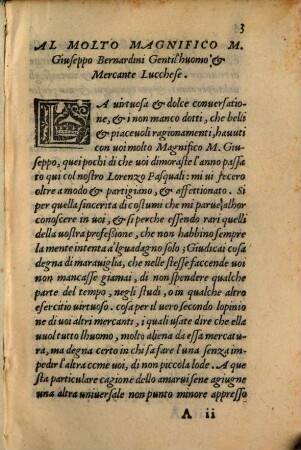 3
AL MOLTO MAGNIFICO M.
Giuseppo Bernardini Gentil'huomo &
Mercante Lucchese.
LA uirtuosa & dolce conuersatio
ne, & i non manco dotti, che belli
& piaceuoli ragionamenti, hauuti
con uoi molto Magnifico M. Giu
seppo, quei pochi di che uoi dimoraste l'anno passa
to qui col nostro Lorenzo Pasquali: mi ui fecero
oltre a modo & partigiano, & affettionato. Si
per quella sincerita di costumi che mi parue allhor
conoscere in uoi, & si perche essendo rari quelli
della uostra professione, che non habbino sempre
la mente intenta a'l guadagno solo; Giudicai cosa
degna di marauiglia, che nelle stesse faccende uoi
non mancasse giamai, di non spendere qualche
parte del tempo, negli studi, o in qualche altro
esercitio uirtuoso. cosa per il uero secondo l'opinio
ne di uoi altri mercanti, i quali usate dire che ella
uuol tutto l'huomo, molto aliena da essa mercatu
ra, ma degna certo in chi sa fare l'una senza im-
pedir l'altra come uoi, di non piccola lode. A que
sta particulare cagione dello amarui sene agiugne
una altra uniuersale non punto minore appresso
A ii